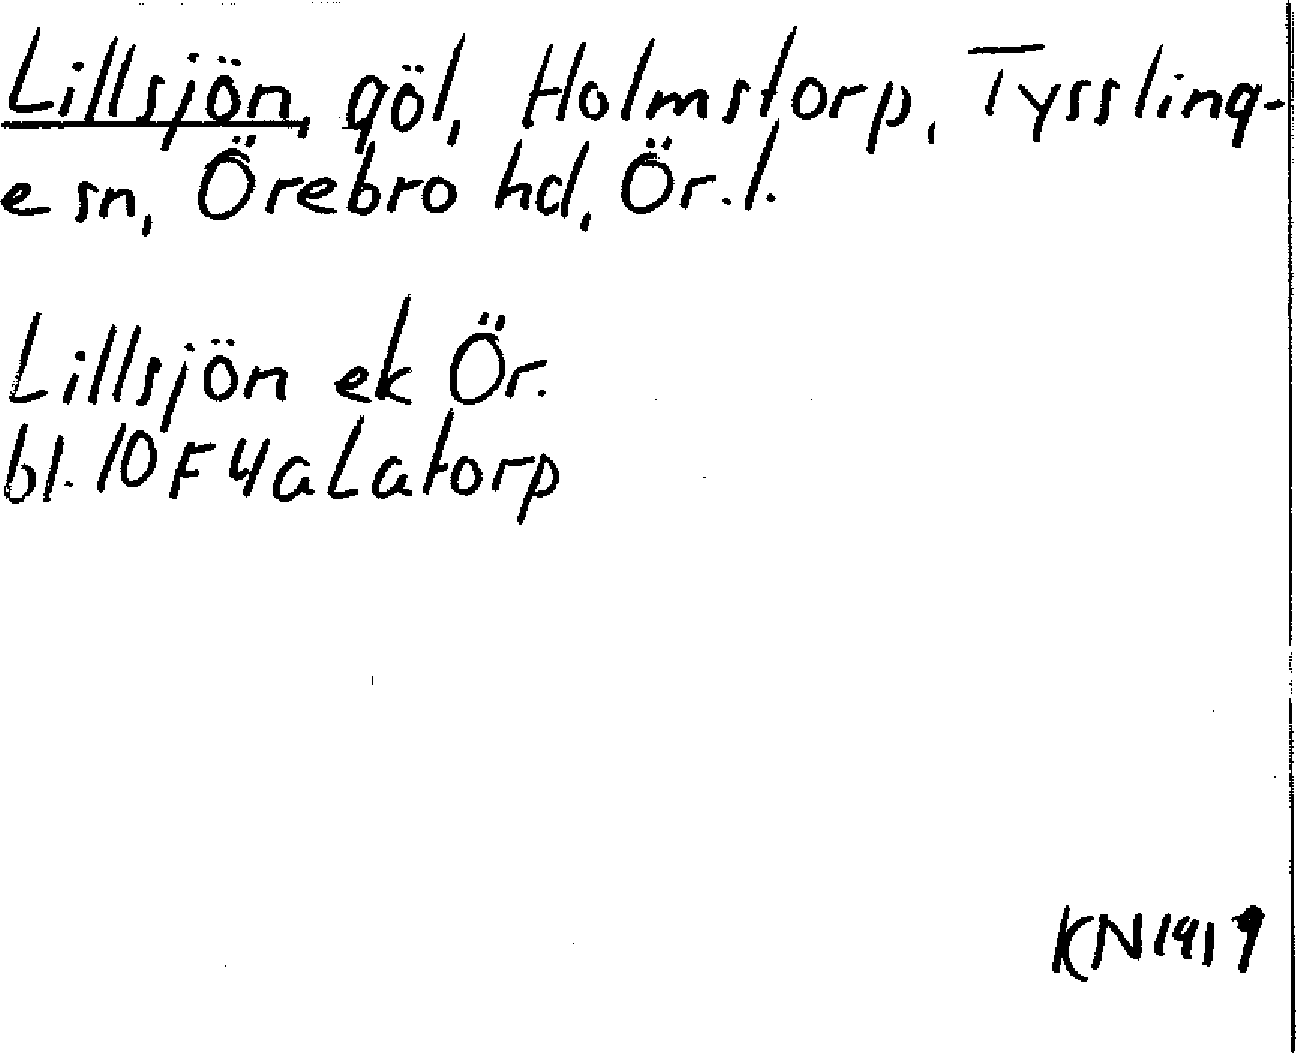 Lillsjön, göl, Holmstorp, Tyssling-
e sn, Örebro hd, Ör.l.
Lillsjön ek Ör.
bl. 10F4a Latorp
KN1919